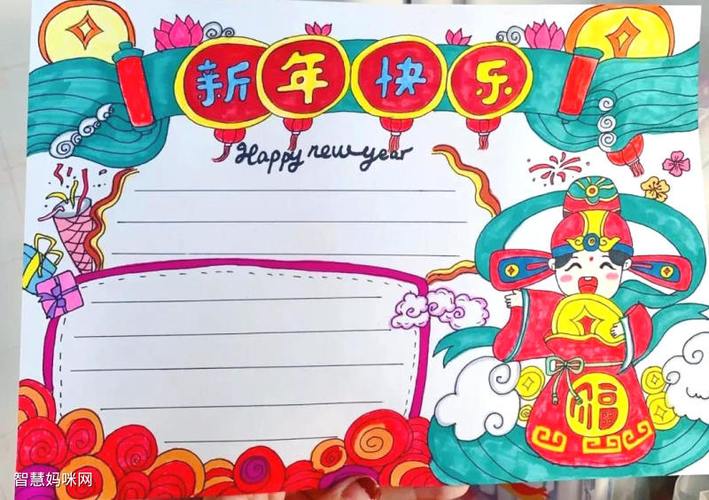 新年快乐
Happy new year
福
智慧妈咪网